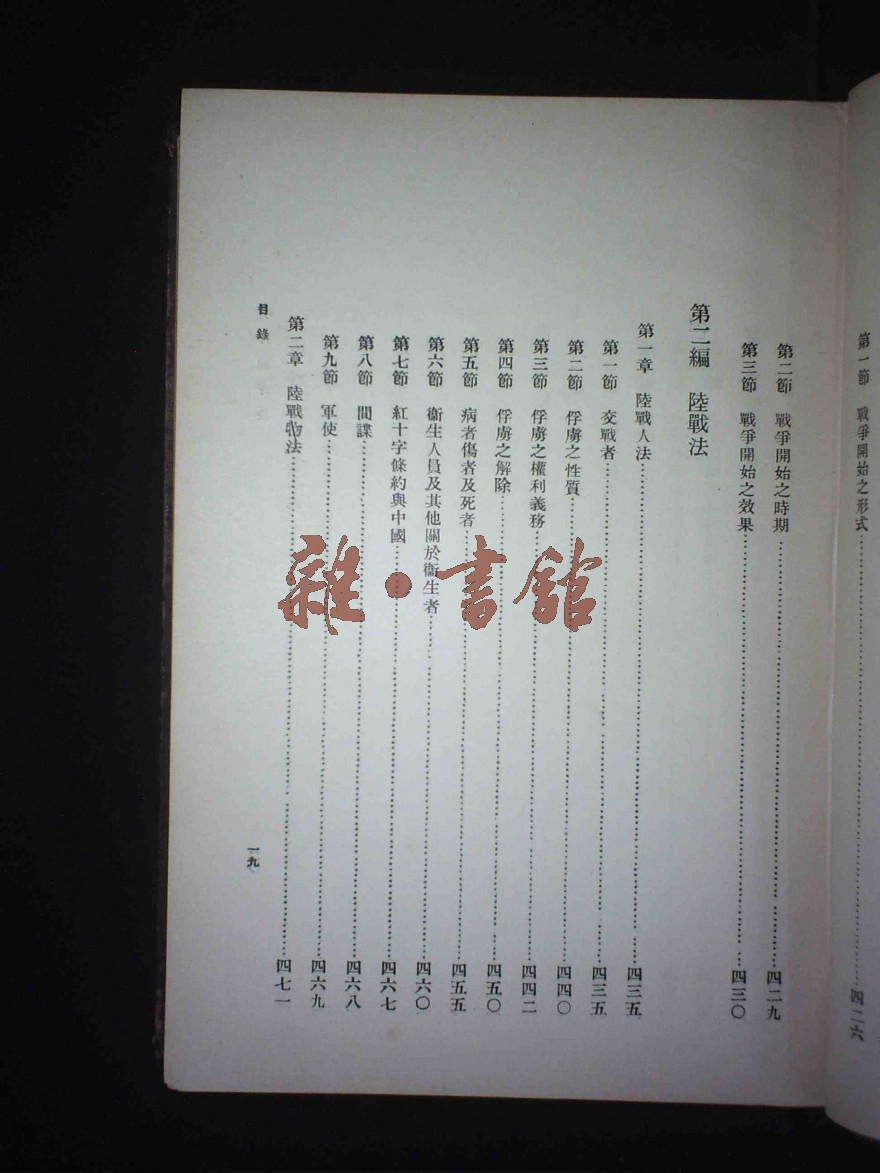 第一節 戰爭開始之形式……四二六
第二節 戰爭開始之時期……四二九
第三節 戰爭開始之效果……四三〇
第二編 陸戰法
第一章 陸戰人法……四三五
第一節 交戰者……四三五
第二節 俘虜之性質……四四〇
第三節 俘虜之權利義務……四四二
第四節 俘虜之解除……四五〇
第五節 病者傷者及死者……四五五
第六節 衞生人員及其他關於衞生者……四六〇
第七節 紅十字條約與中國……四六七
第八節 間諜……四六八
第九節 軍使……四六九
第二章 陸戰物法……四七一
目錄
一九
雜·書館